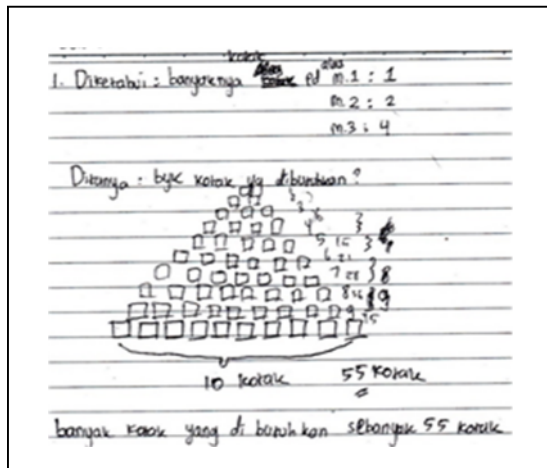 kotak
1. Diketahui : banyaknya pd alas m.1 : 1
m.2 : 2
m.3 : 4
Ditanya : byk kotak yg dibutuhkan ?
5 15
6 21
7 28 8
8 36 9
9
10 kotak 55 kotak
banyak kotak yang di butuhkan sebanyak 55 kotak